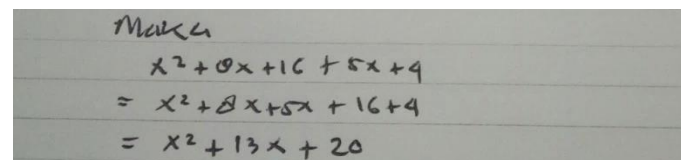 Maka
x² + 8x + 16 + 5x + 4
= x² + 8x + 5x + 16 + 4
= x² + 13x + 20